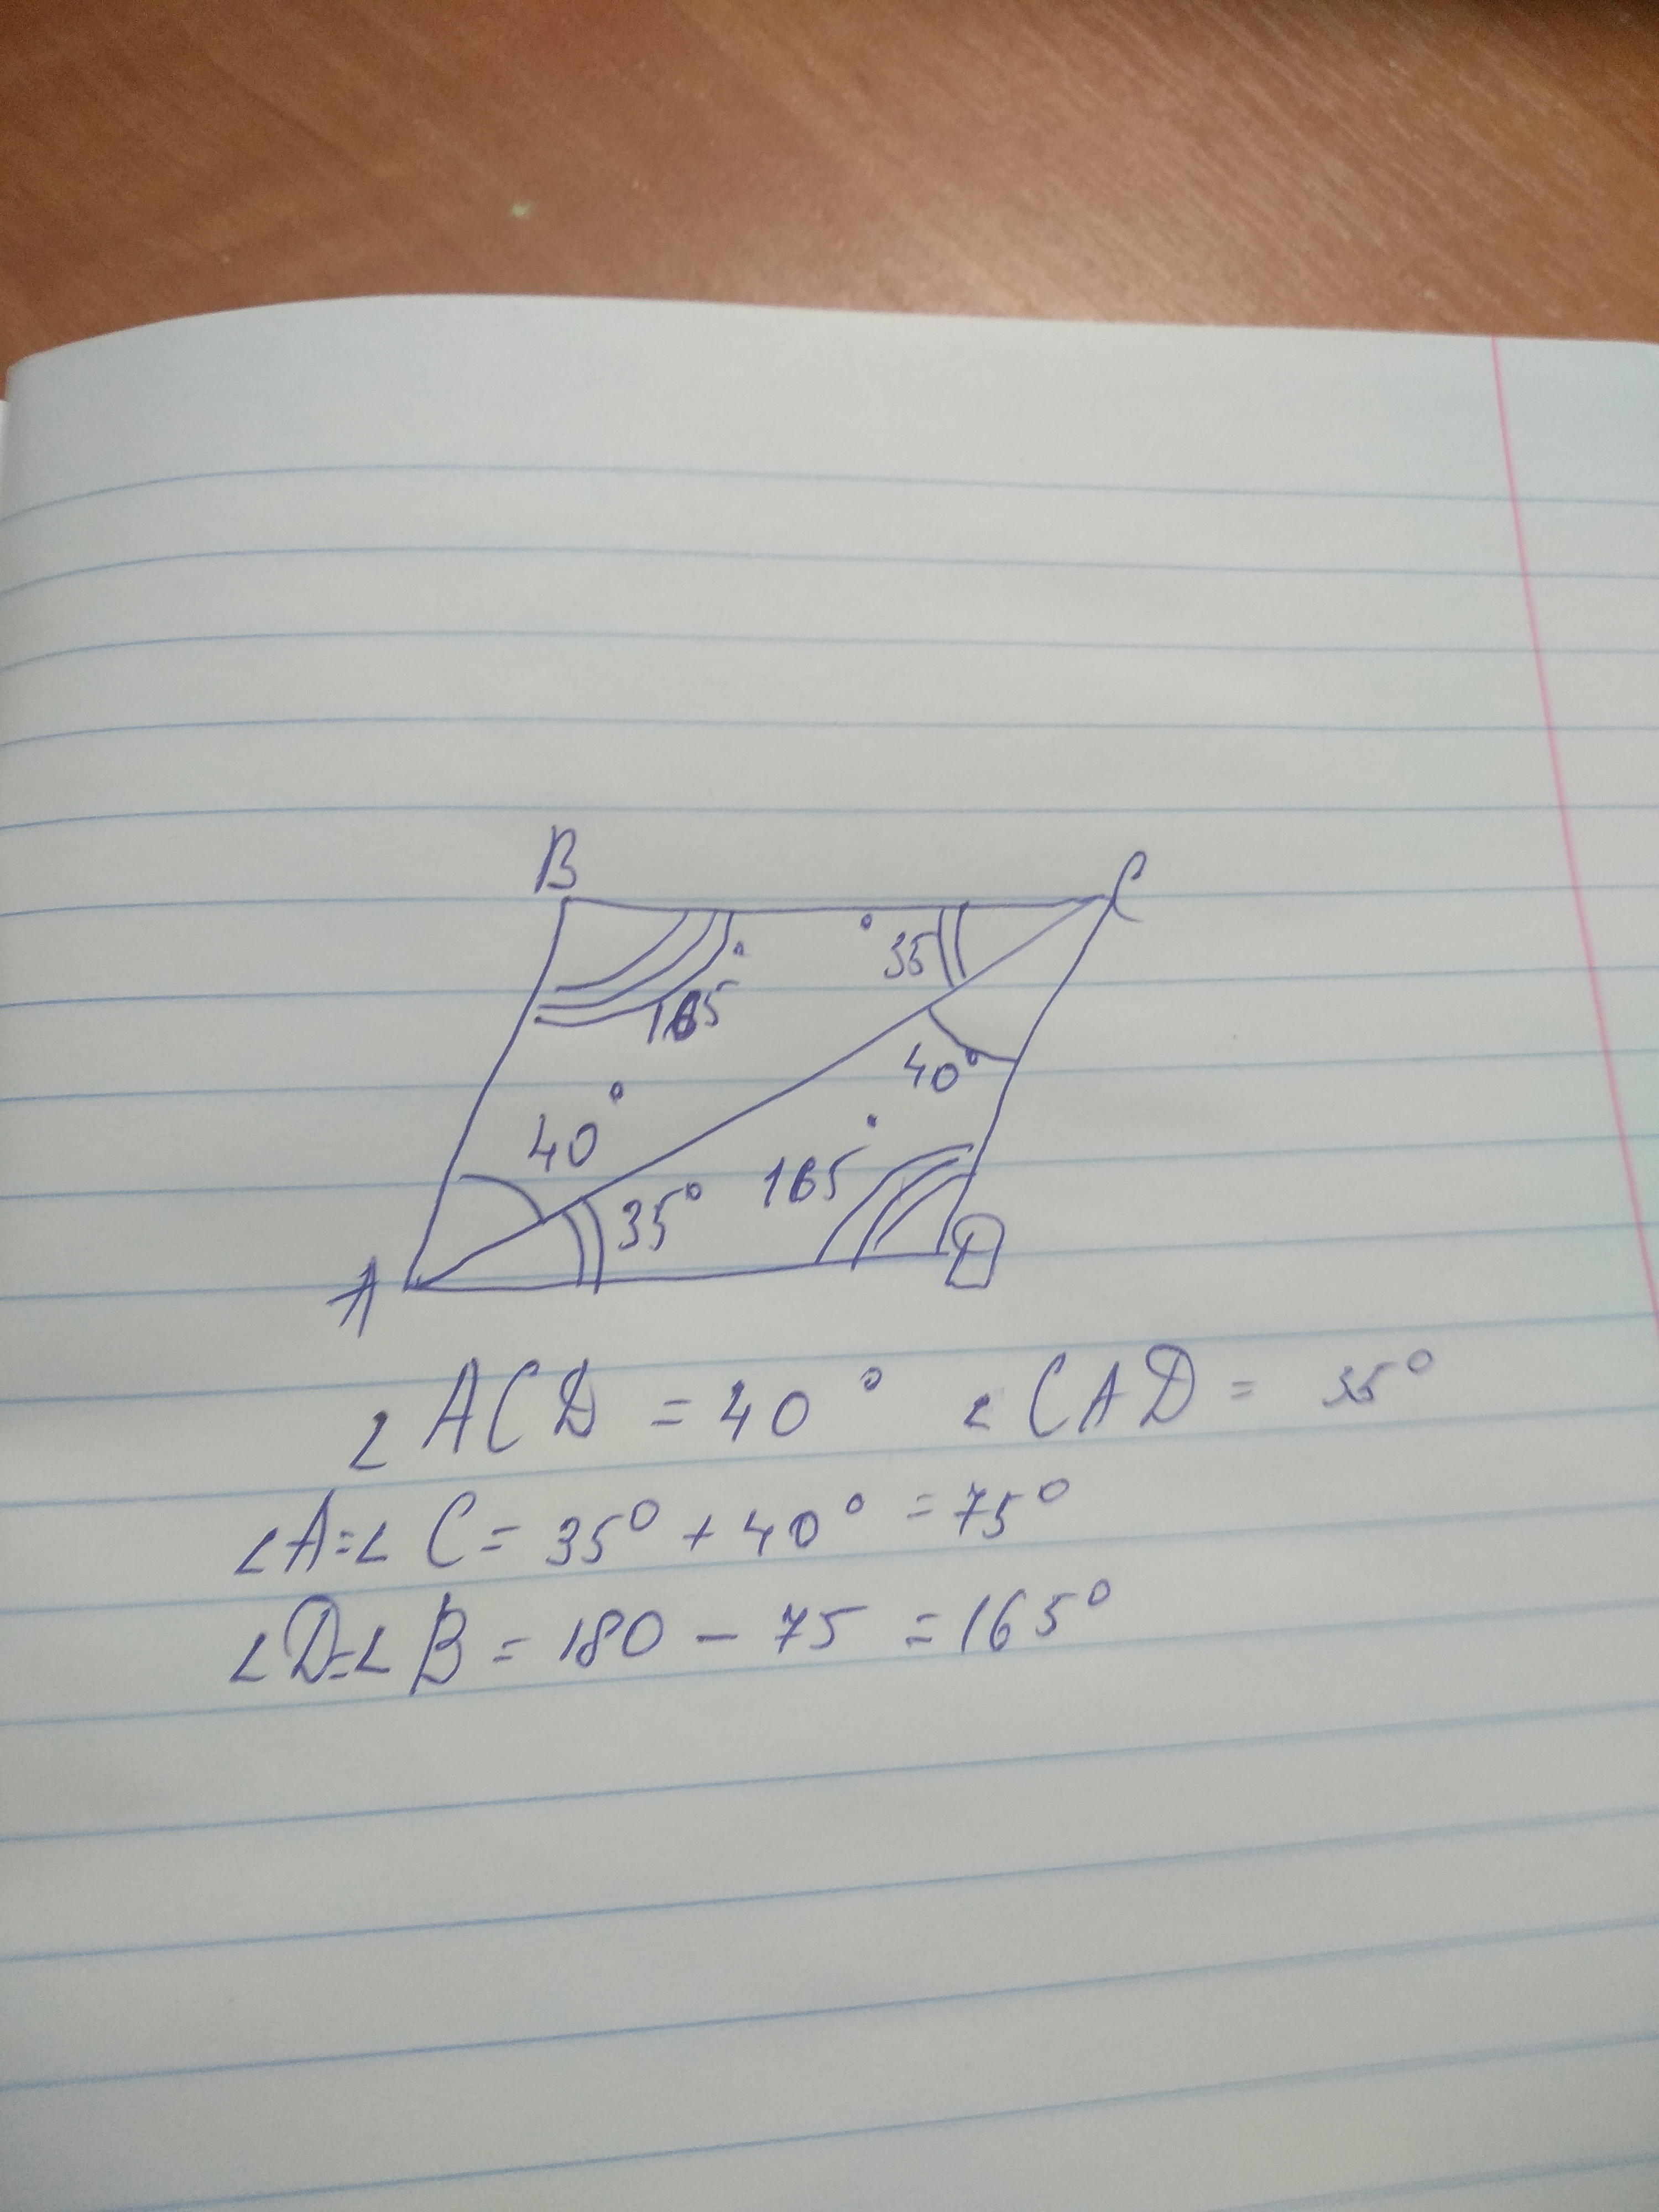 B C
165° 35°
40°
40°
35° 165°
A D
∠ACD = 40° ∠CAD = 35°
∠A=∠C= 35° + 40° = 75°
∠D=∠B = 180 - 75 = 165°